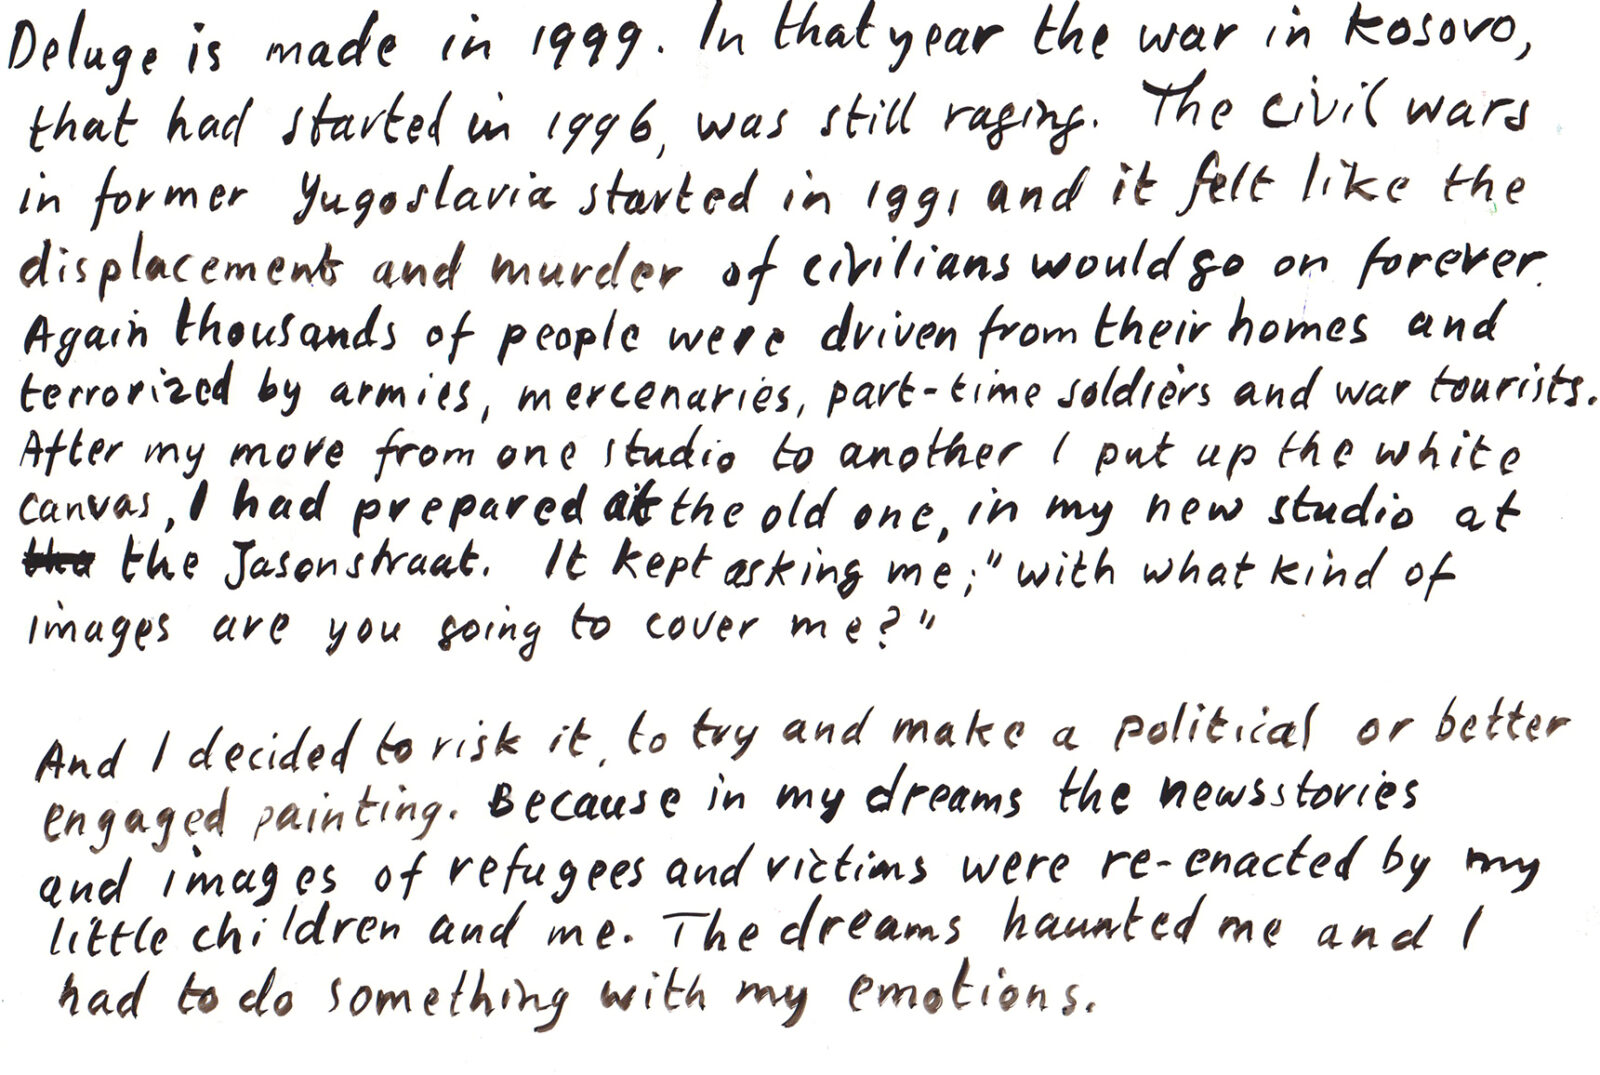 Deluge is made in 1999. In that year the war in Kosovo,
that had started in 1996, was still raging. The civil wars
in former Yugoslavia started in 1991 and it felt like the
displacement and murder of civilians would go on forever.
Again thousands of people were driven from their homes and
terrorized by armies, mercenaries, part-time soldiers and war tourists.
After my move from one studio to another I put up the white
canvas, I had prepared at the old one, in my new studio at
the Jasonstraat. It kept asking me; "with what kind of
images are you going to cover me?"
And I decided to risk it, to try and make a political or better
engaged painting. Because in my dreams the newsstories
and images of refugees and victims were re-enacted by my
little children and me. The dreams haunted me and I
had to do something with my emotions.